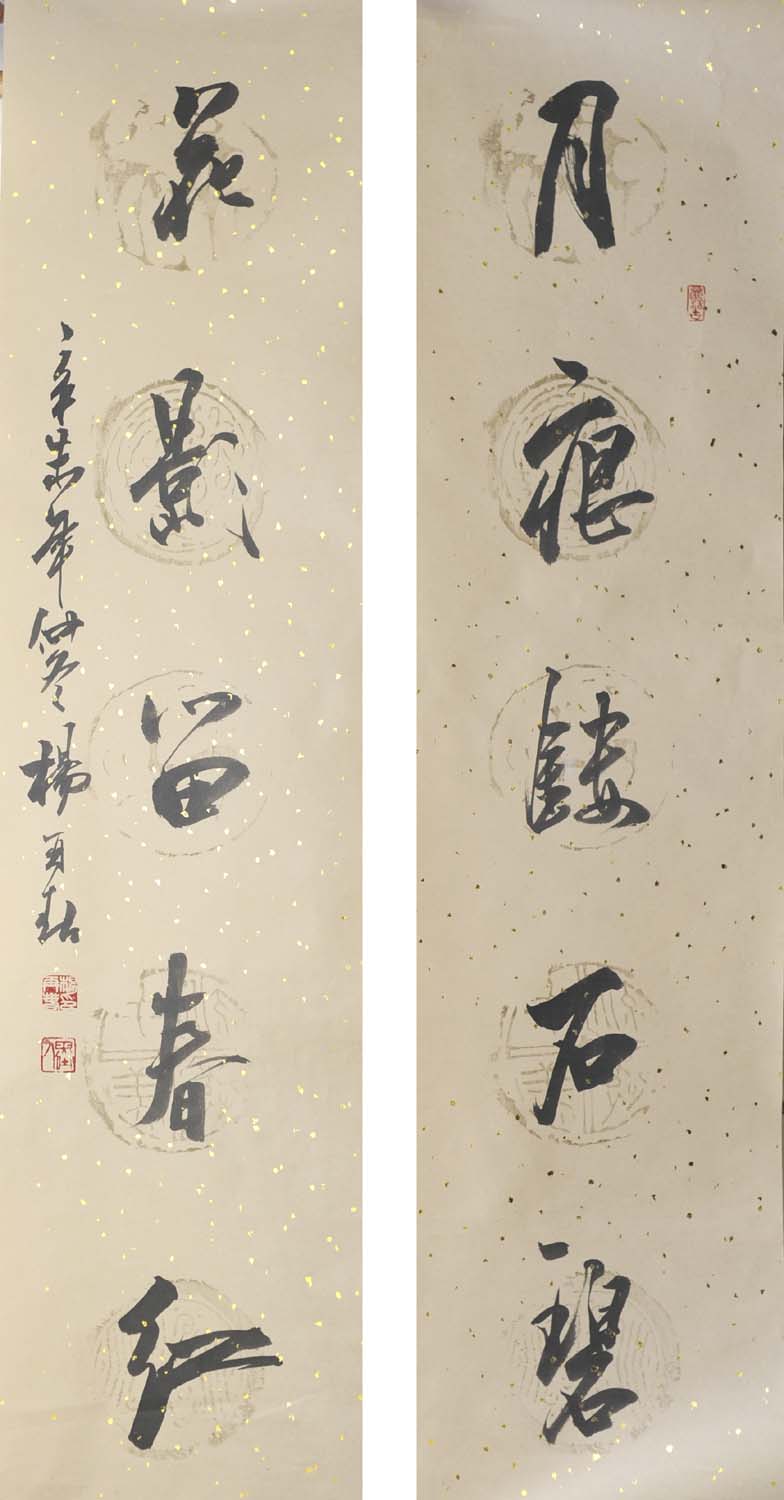 月痕鏤石碧
花影留春红
辛未年仲冬楊再春